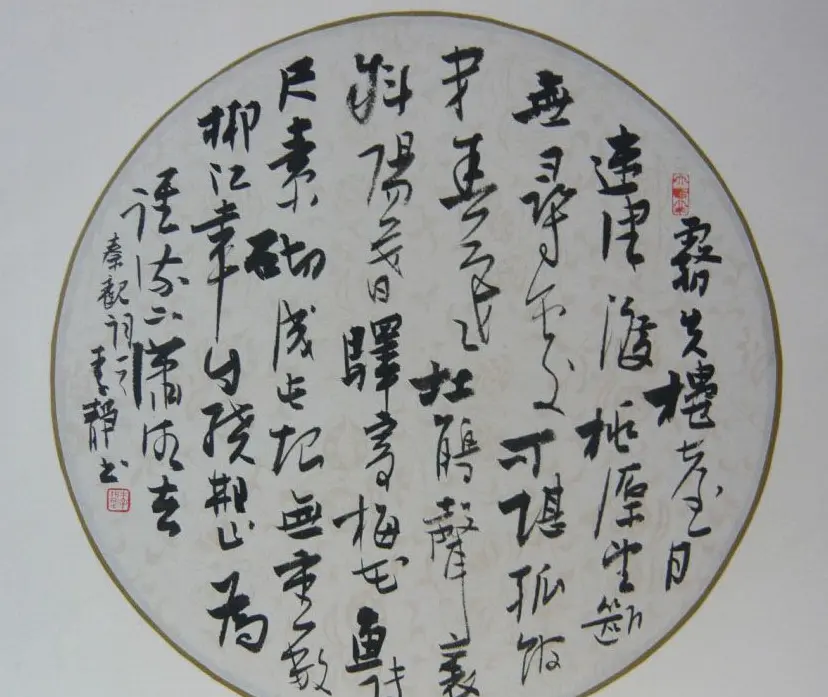 霧失樓臺月
迷津渡桃源望斷
無尋處可堪孤館
閉春寒杜鵑聲裏
斜陽暮驛寄梅花魚傳
尺素砌成此恨無重數
郴江幸自繞郴山為
誰流下瀟湘去
秦觀詞 李靜书